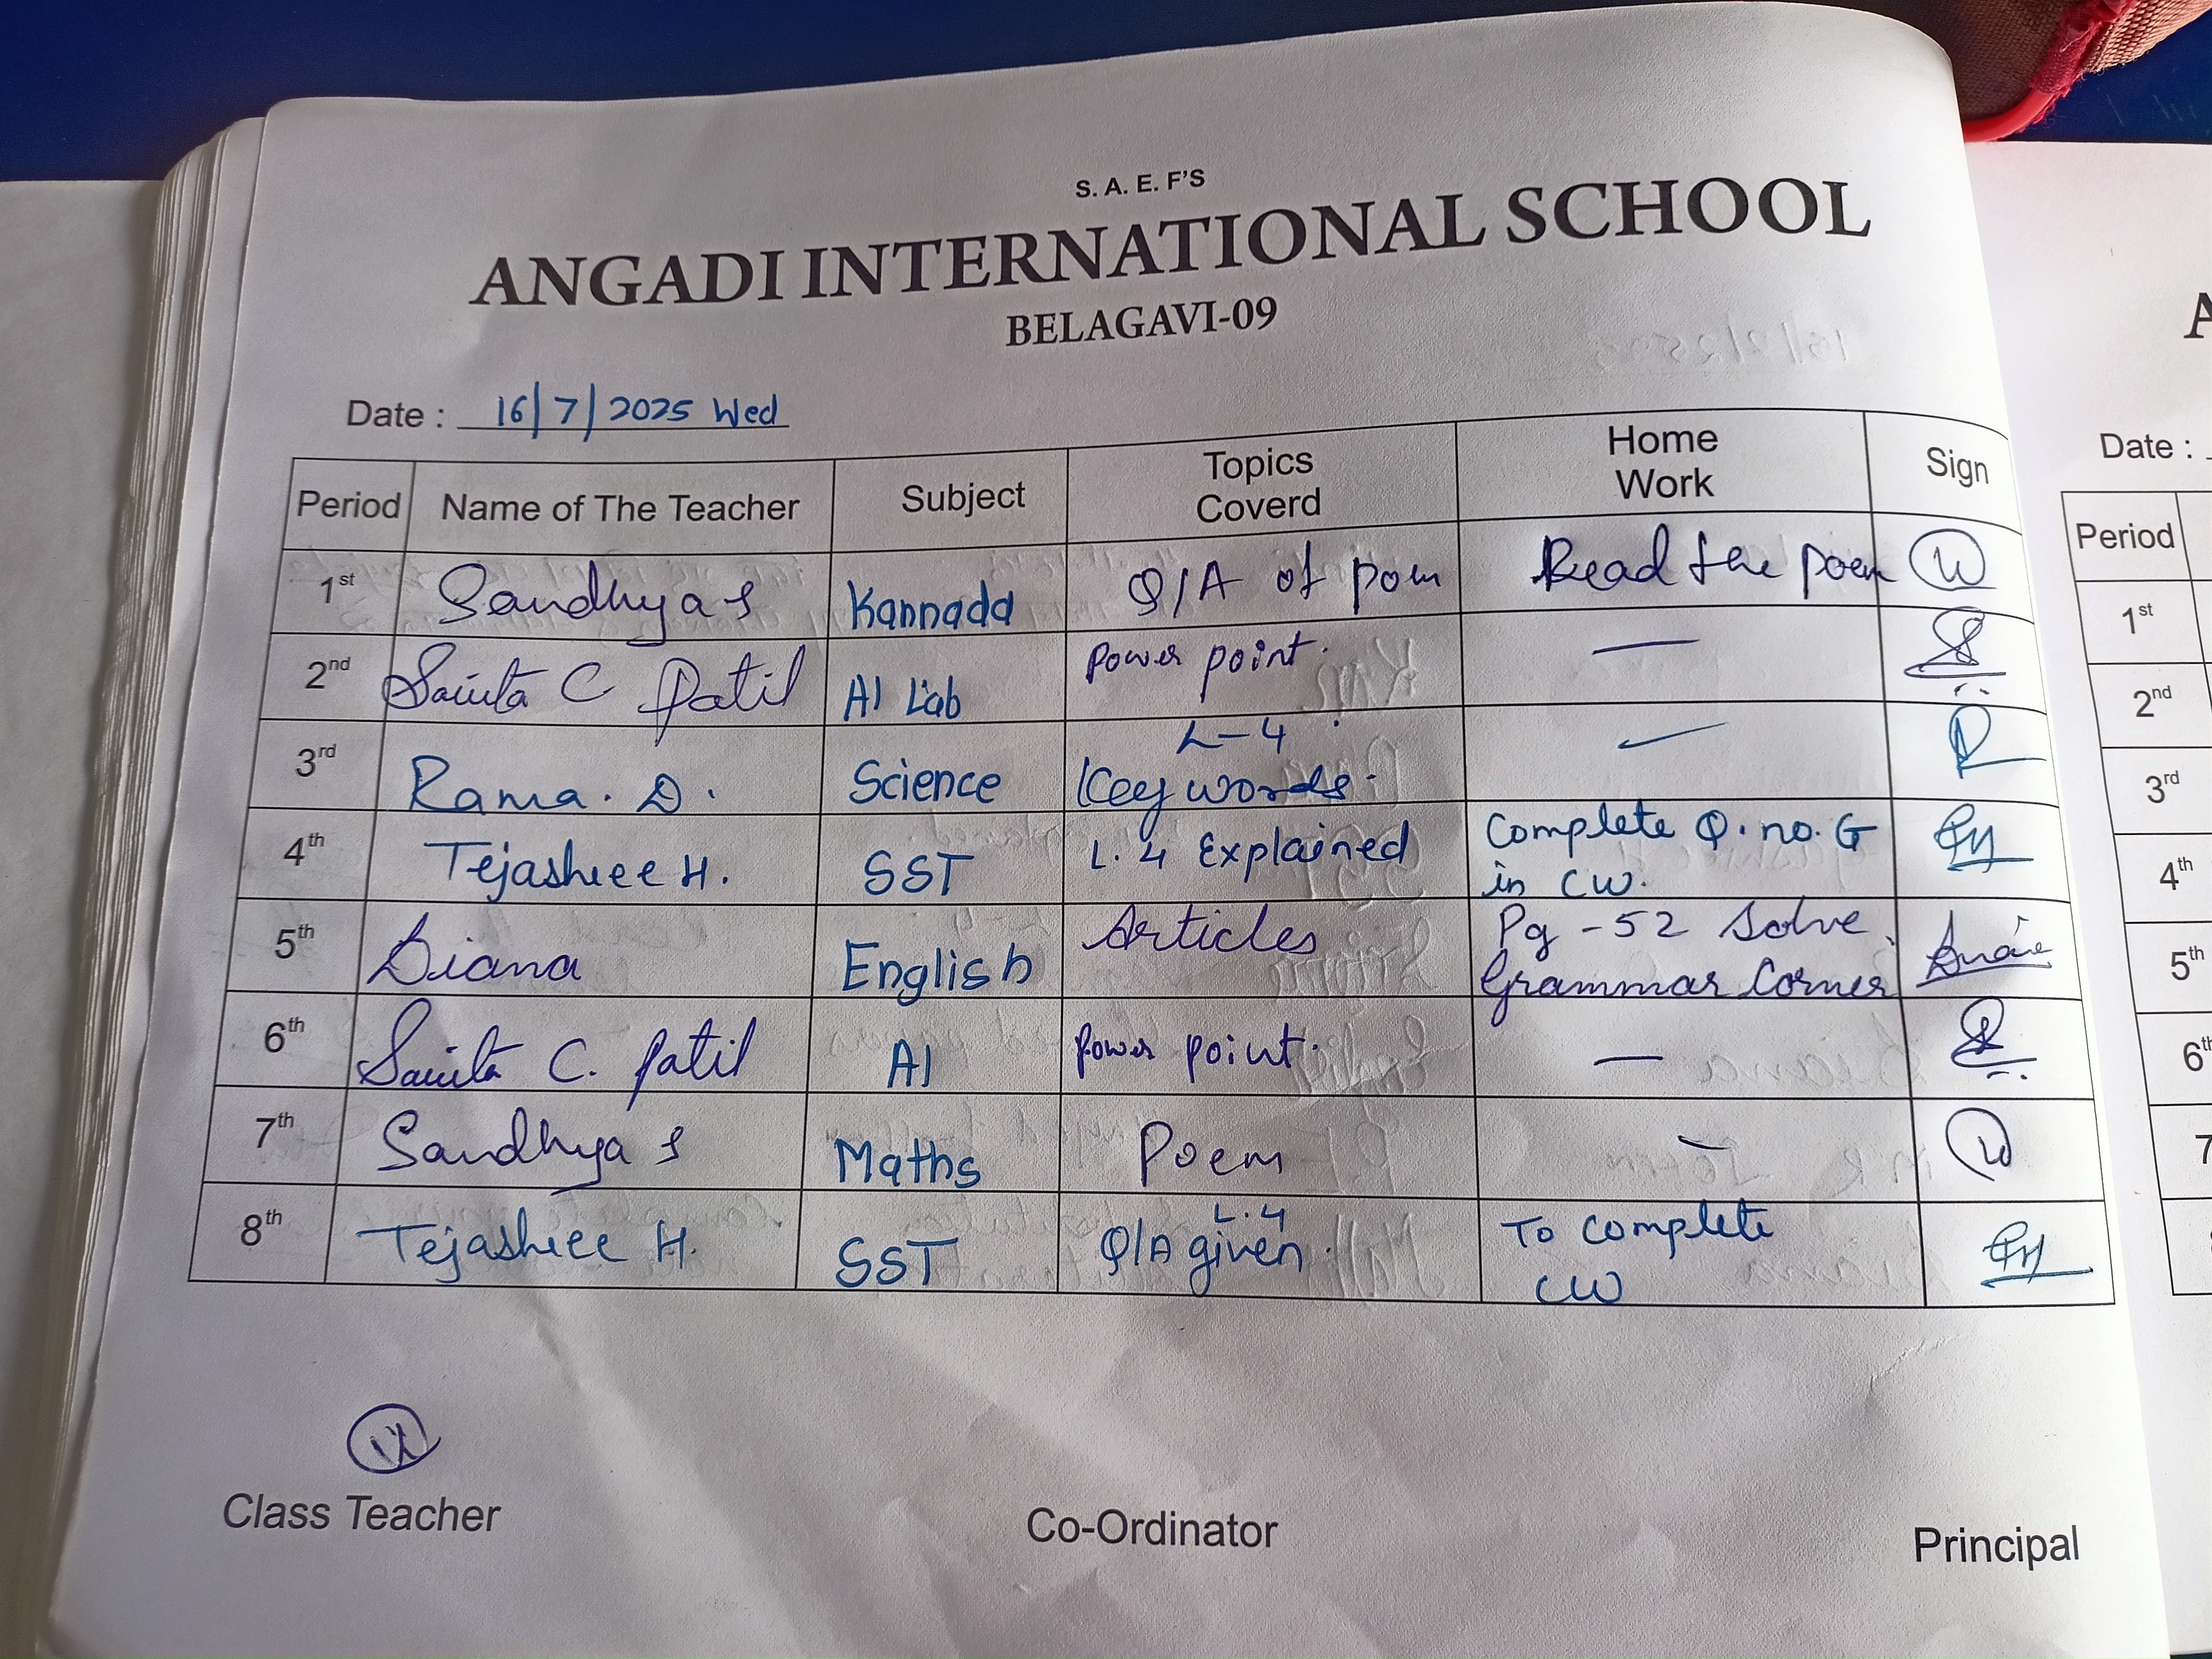 S. A. E. F'S
ANGADI INTERNATIONAL SCHOOL
BELAGAVI-09
Date : 16/7/2025 Wed
Period Name of The Teacher Subject Topics Coverd Home Work Sign
1st Sandhya S Kannada Q/A of poem Read the poem
2nd Savita C Patil AI Lab Power point. —
3rd Rama. D. Science L-4 Key words.
4th Tejashree H. SST L. 4 Explained Complete Q. no. G
in CW.
5th Diana English Articles Pg - 52 Solve
Grammar Corner
6th Savita C. Patil AI Power point. —
7th Sandhya S Maths Poem —
8th Tejashree H. SST L.4 Q/A given. To complete
CW
Class Teacher Co-Ordinator Principal
A
Date :
Period
1st
2nd
3rd
4th
5th
6th
7